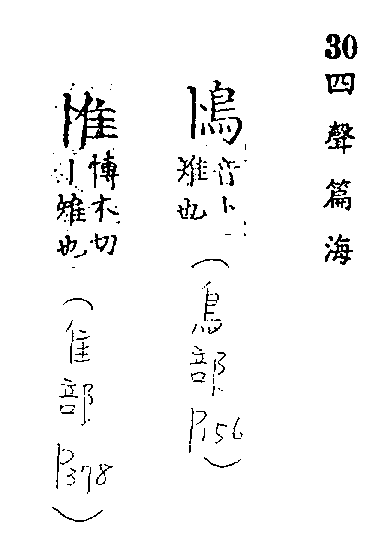 30四聲篇海
鳪
音卜
雉也
(鳥部P156)
博木切
丨雉也
(隹部P378)